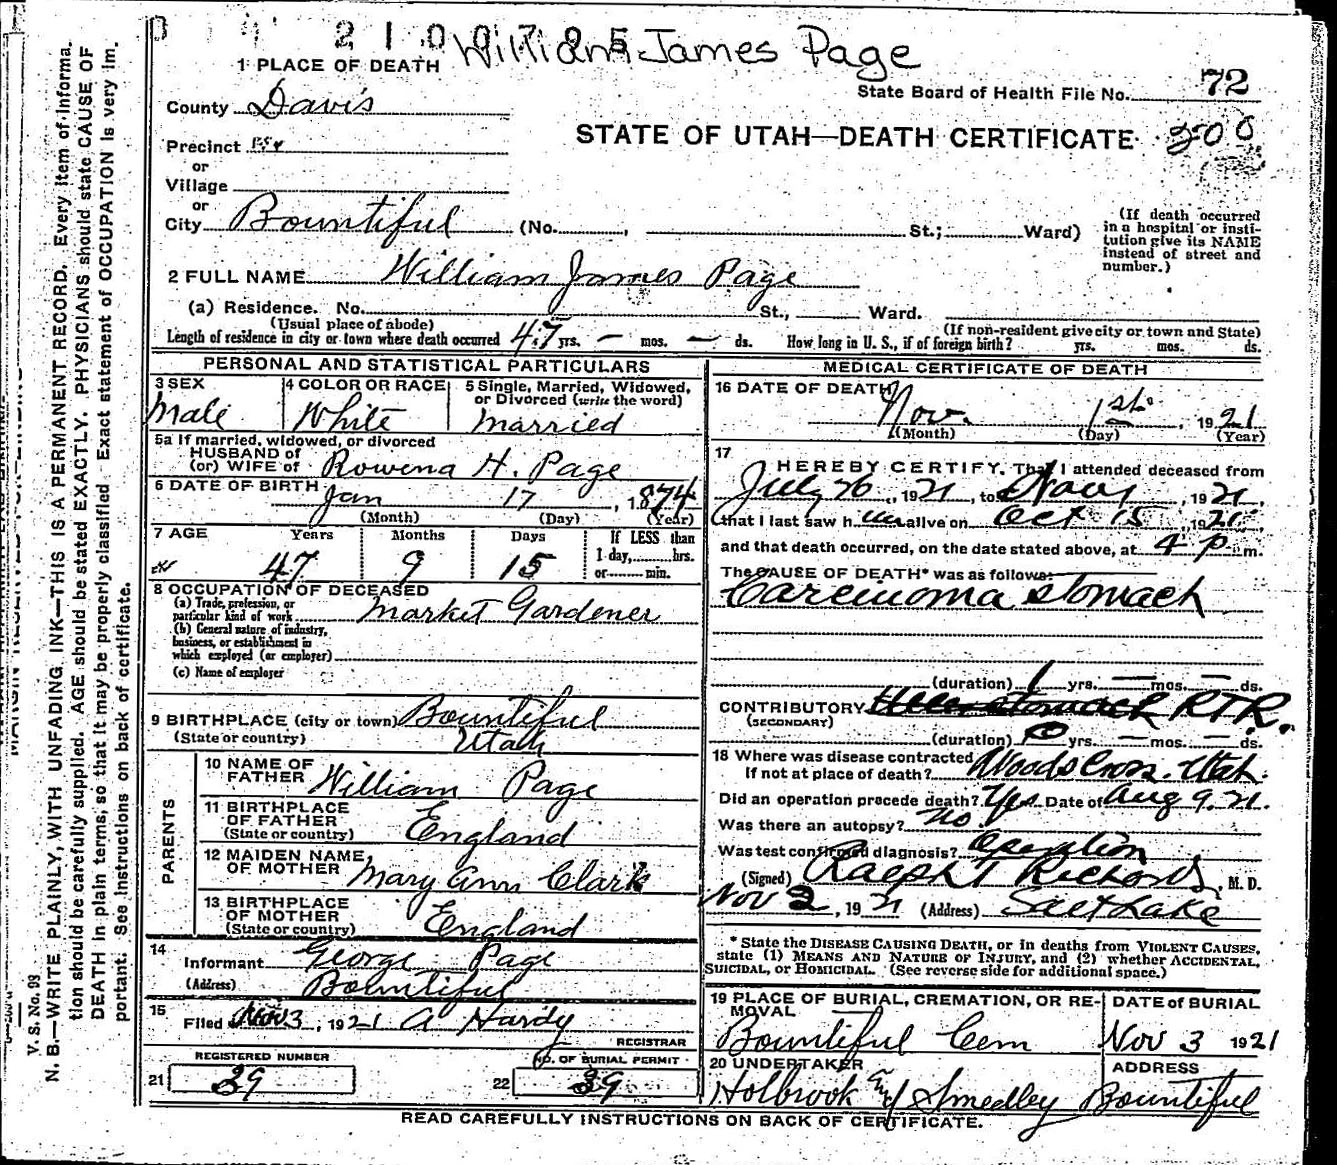 William James Page
1 PLACE OF DEATH
State Board of Health File No. 72
County Davis
STATE OF UTAH—DEATH CERTIFICATE
Precinct
or
Village
or
City Bountiful (No. , St.; Ward)
(If death occurred in a hospital or institution give its NAME instead of street and number.)
2 FULL NAME William James Page
(a) Residence. No. St., Ward.
(Usual place of abode) (If non-resident give city or town and State)
Length of residence in city or town where death occurred 47 yrs. — mos. — ds. How long in U. S., if of foreign birth? yrs. mos. ds.
PERSONAL AND STATISTICAL PARTICULARS
3 SEX
Male
4 COLOR OR RACE
White
5 Single, Married, Widowed, or Divorced (write the word)
Married
5a If married, widowed, or divorced
HUSBAND of
(or) WIFE of Rowena H. Page
6 DATE OF BIRTH Jan 17, 1874
(Month) (Day) (Year)
7 AGE Years Months Days If LESS than
1 day, hrs.
or min.
47 9 15
8 OCCUPATION OF DECEASED
(a) Trade, profession, or particular kind of work Market Gardener
(b) General nature of industry, business, or establishment in which employed (or employer)
(c) Name of employer
9 BIRTHPLACE (city or town) Bountiful
(State or country) Utah
PARENTS
10 NAME OF FATHER William Page
11 BIRTHPLACE OF FATHER
(State or country) England
12 MAIDEN NAME OF MOTHER Mary Ann Clark
13 BIRTHPLACE OF MOTHER
(State or country) England
14
Informant George Page
(Address) Bountiful
15
Filed Nov 3, 1921 A Hardy
REGISTRAR
REGISTERED NUMBER
21 39
NO. OF BURIAL PERMIT
22 39
MEDICAL CERTIFICATE OF DEATH
16 DATE OF DEATH
Nov. 1st. 1921
(Month) (Day) (Year)
17
I HEREBY CERTIFY, That I attended deceased from
July 26, 1921, to Nov 1, 1921,
that I last saw him alive on Oct 15, 1921,
and that death occurred, on the date stated above, at 4 p m.
The CAUSE OF DEATH* was as follows:
Carcinoma stomach
(duration) 1 yrs. — mos. — ds.
CONTRIBUTORY RTR.
(SECONDARY)
(duration) yrs. — mos. — ds.
18 Where was disease contracted
If not at place of death? Woods Cross. Utah.
Did an operation precede death? Yes. Date of Aug 9. 21.
Was there an autopsy? No
Was test confirmed diagnosis? Operation
(Signed) Ralph T Richards, M. D.
Nov 2, 1921 (Address) Salt Lake
* State the DISEASE CAUSING DEATH, or in deaths from VIOLENT CAUSES, state (1) MEANS AND NATURE OF INJURY, and (2) whether ACCIDENTAL, SUICIDAL, or HOMICIDAL. (See reverse side for additional space.)
19 PLACE OF BURIAL, CREMATION, OR REMOVAL
Bountiful Cem
DATE of BURIAL
Nov 3 1921
20 UNDERTAKER
Holbrook & Smedley
ADDRESS
Bountiful
READ CAREFULLY INSTRUCTIONS ON BACK OF CERTIFICATE.
V. S. No. 93
N. B.—WRITE PLAINLY, WITH UNFADING INK—THIS IS A PERMANENT RECORD. Every item of information should be carefully supplied. AGE should be stated EXACTLY. PHYSICIANS should state CAUSE OF DEATH in plain terms, so that it may be properly classified. Exact statement of OCCUPATION is very important. See instructions on back of certificate.